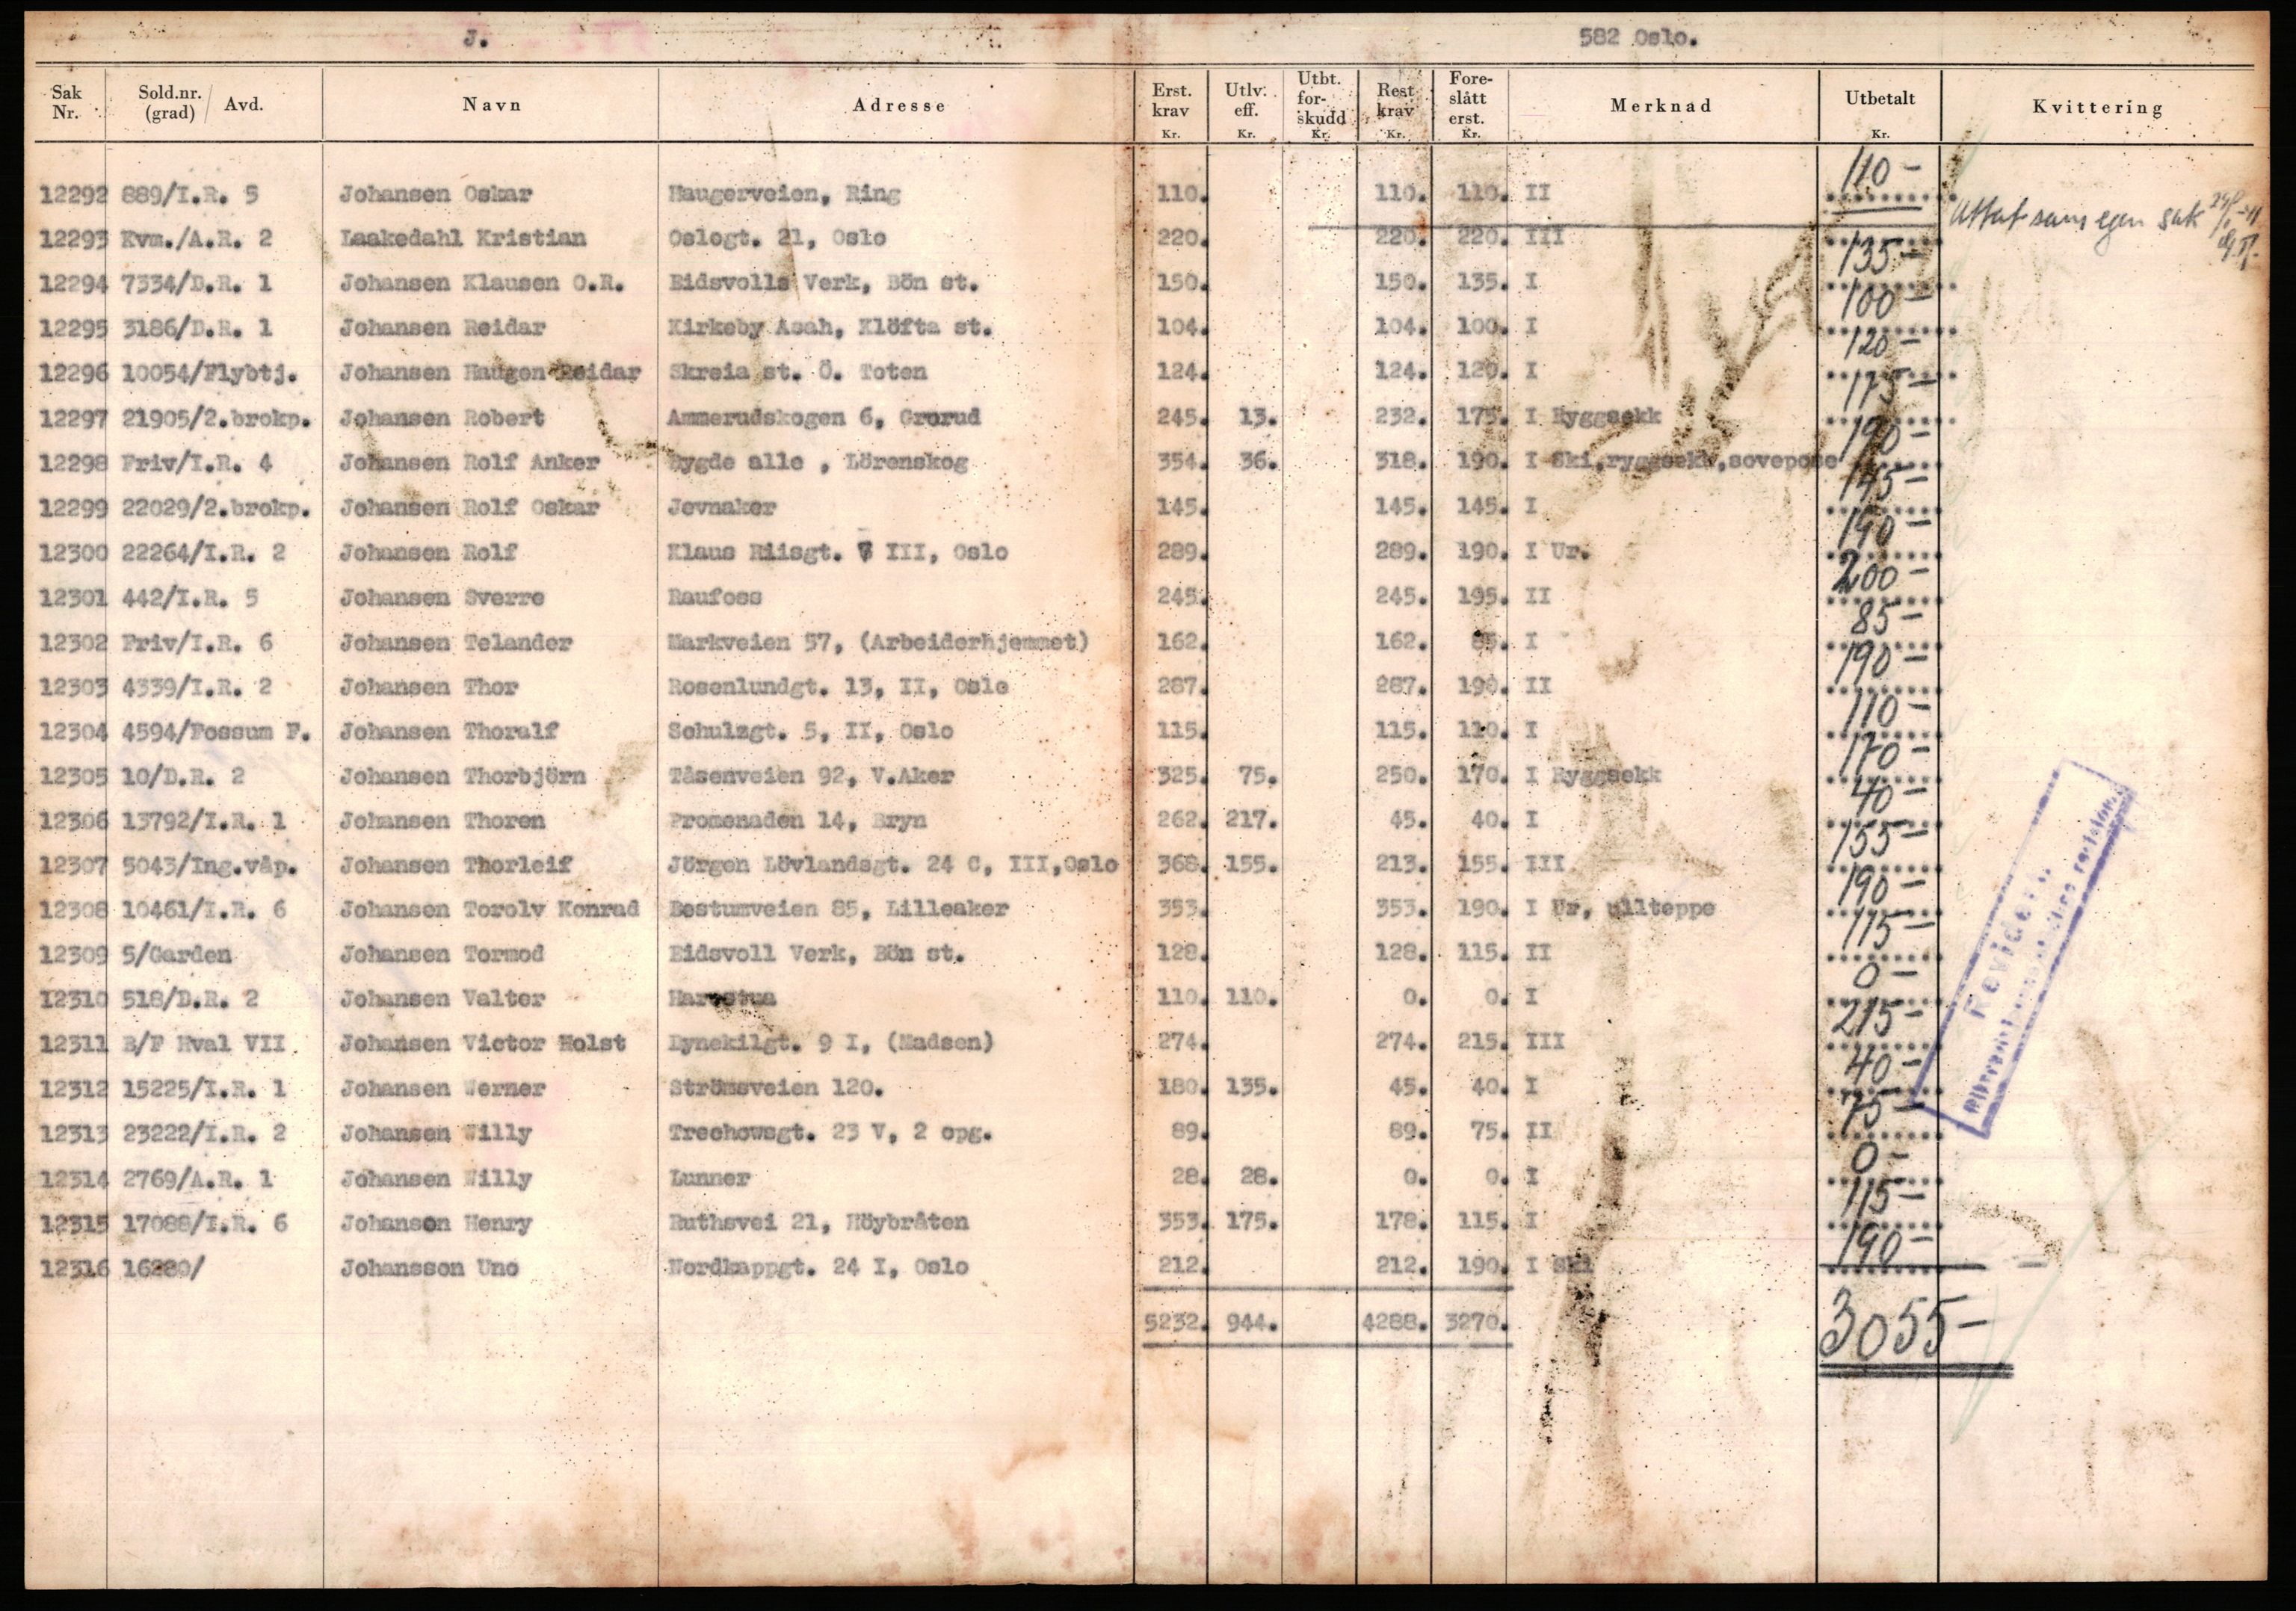 J. 582 Oslo.
Sak Nr. Sold.nr. (grad) / Avd. Navn Adresse Erst. krav Kr. Utlv. eff. Kr. Utbt. for- skudd Kr. Rest krav Kr. Fore- slått erst. Kr. Merknad Utbetalt Kr. Kvittering
12292 889/I.R. 5 Johansen Oskar Haugerveien, Ring 110. 110. 110. II 110-
12293 Kvm./A.R. 2 Laakedahl Kristian Oslogt. 21, Oslo 220. 220. 220. III som egen sak
12294 7334/D.R. 1 Johansen Klausen O.R. Eidsvolls Verk, Bön st. 150. 150. 135. I 135-
12295 3186/D.R. 1 Johansen Reidar Kirkeby Asah, Klöfta st. 104. 104. 100. I 100-
12296 10054/Flybtj. Johansen Haugen Reidar Skreia st. Ö. Toten 124. 124. 120. I 120-
12297 21905/2.brokp. Johansen Robert Ammerudskogen 6, Grorud 245. 13. 232. 175. I Ryggsekk 175-
12298 Friv/I.R. 4 Johansen Rolf Anker Bygde alle , Lörenskog 354. 36. 318. 190. I Ski,ryggsekk,sovepose 190-
12299 22029/2.brokp. Johansen Rolf Oskar Jevnaker 145. 145. 145. I 145-
12300 22264/I.R. 2 Johansen Rolf Klaus Riisgt. III, Oslo 289. 289. 190. I Ur. 190-
12301 442/I.R. 5 Johansen Sverre Raufoss 245. 245. 195. II 200-
12302 Friv/I.R. 6 Johansen Telander Markveien 57, (Arbeiderhjemmet) 162. 162. 85. I 85-
12303 4339/I.R. 2 Johansen Thor Rosenlundgt. 13, II, Oslo 287. 287. 190. II 190-
12304 4594/Fossum F. Johansen Thoralf Schulzgt. 5, II, Oslo 115. 115. 110. I 110-
12305 10/D.R. 2 Johansen Thorbjörn Tåsenveien 92, V.Aker 325. 75. 250. 170. I Ryggsekk 170-
12306 13792/I.R. 1 Johansen Thoren Promenaden 14, Bryn 262. 217. 45. 40. I 40-
12307 5043/Ing.våp. Johansen Thorleif Jörgen Lövlandsgt. 24 C, III,Oslo 368. 155. 213. 155. III 155-
12308 10461/I.R. 6 Johansen Torolv Konrad Bestumveien 85, Lilleaker 353. 353. 190. I Ur, ullteppe 190-
12309 5/Garden Johansen Tormod Eidsvoll Verk, Bön st. 128. 128. 115. II 115-
12310 518/D.R. 2 Johansen Valter Harestua 110. 110. 0. 0. I 0-
12311 B/F Hval VII Johansen Victor Holst Dynekilgt. 9 I, (Madsen) 274. 274. 215. III 215-
12312 15225/I.R. 1 Johansen Werner Strömsveien 120. 180. 135. 45. 40. I 40-
12313 23222/I.R. 2 Johansen Willy Trechowsgt. 23 V, 2 opg. 89. 89. 75. II 75-
12314 2769/A.R. 1 Johansen Willy Lunner 28. 28. 0. 0. I 0-
12315 17088/I.R. 6 Johanson Henry Ruthsvei 21, Höybråten 353. 175. 178. 115. I 115-
12316 16280/ Johansson Uno Nordkappgt. 24 I, Oslo 212. 212. 190. I Ski 190-
5232. 944. 4288. 3270. 3055-